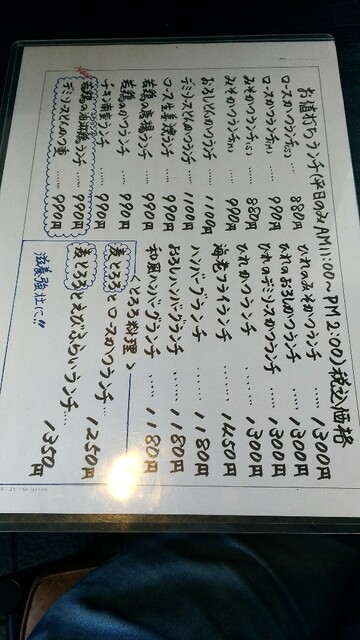 お値打ちランチ(平日のみ/AM11:00～PM2:00)税込価格
ロースかつランチ(S) … 880円
ロースかつランチ(M) … 990円
みそかつランチ(S) … 880円
みそかつランチ(M) … 990円
おろしとんかつランチ … 1100円
デミソースとんかつランチ … 1100円
ロース生姜焼ランチ … 990円
若鶏の唐揚ランチ … 990円
若鶏のかつランチ … 990円
チキン南蛮ランチ … 990円
若鶏の油淋鶏ランチ … 990円
デミソースとんかつ重 …… 990円
ひれのみそかつランチ …… 1300円
ひれのおろしかつランチ …… 1300円
ひれのデミソースかつランチ …… 1300円
ひれかつランチ …… 1300円
海老フライランチ …… 1450円
ハンバーグランチ …… 1180円
おろしハンバーグランチ …… 1180円
和風ハンバーグランチ …… 1180円
とろろ料理
麦とろとロースかつランチ … 1250円
麦とろとえびふらいランチ … 1350円
滋養強壮に!!